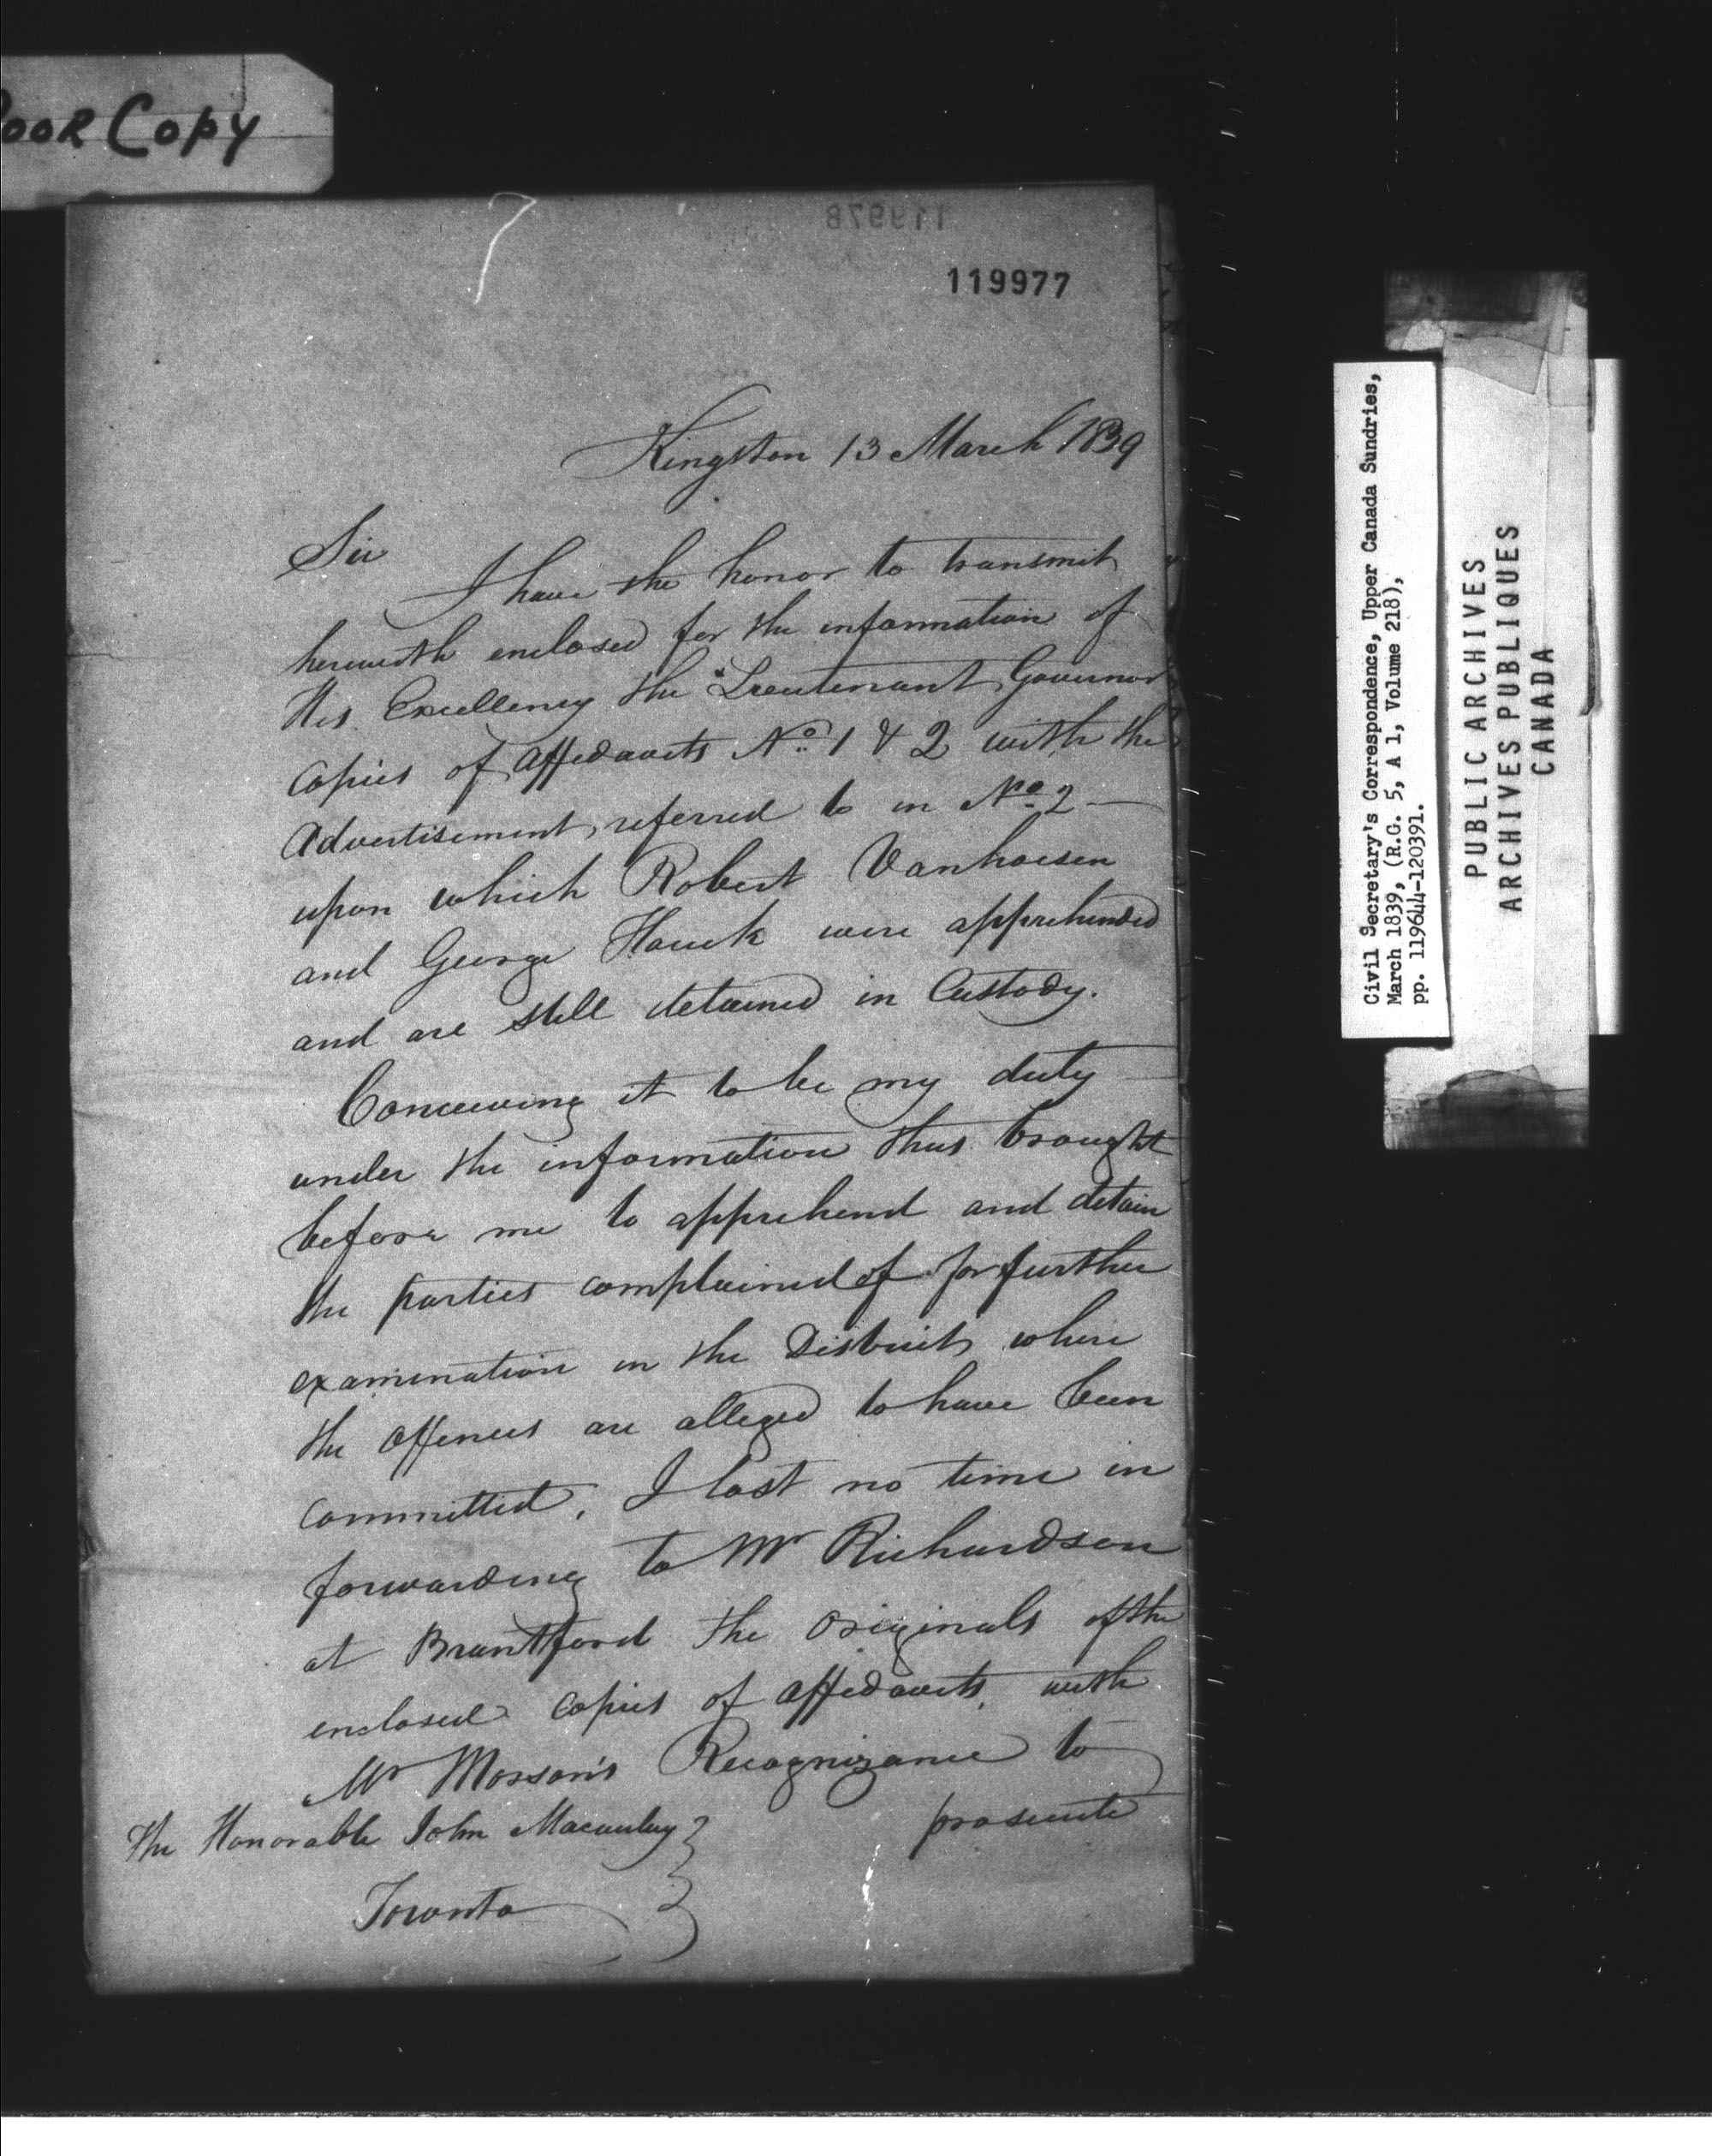 Poor Copy
119978
119977
Kingston 13 March 1839
Sir
I have the honor to transmit
herewith enclosed for the information of
His Excellency the Lieutenant Governor
Copies of Affidavits No. 1 & 2 with the
Advertisement, referred to in No. 2 —
upon which Robert Vanhoesen
and George Houck were apprehended
and are still detained in Custody.
Conceiving it to be my duty
under the information thus brought
before me to apprehend and detain
the parties complained of for further
examination in the District where
the Offences are alleged to have been
committed, I lost no time in
forwarding to Mr Richardson
at Brantford the Originals of the
enclosed Copies of Affidavits, with
Mr Mosson's Recognizance to
prosecute
The Honorable John Macaulay
Toronto
Civil Secretary's Correspondence, Upper Canada Sundries,
March 1839, (R.G. 5, A 1, Volume 218),
pp. 119644-120391.
PUBLIC ARCHIVES
ARCHIVES PUBLIQUES
CANADA